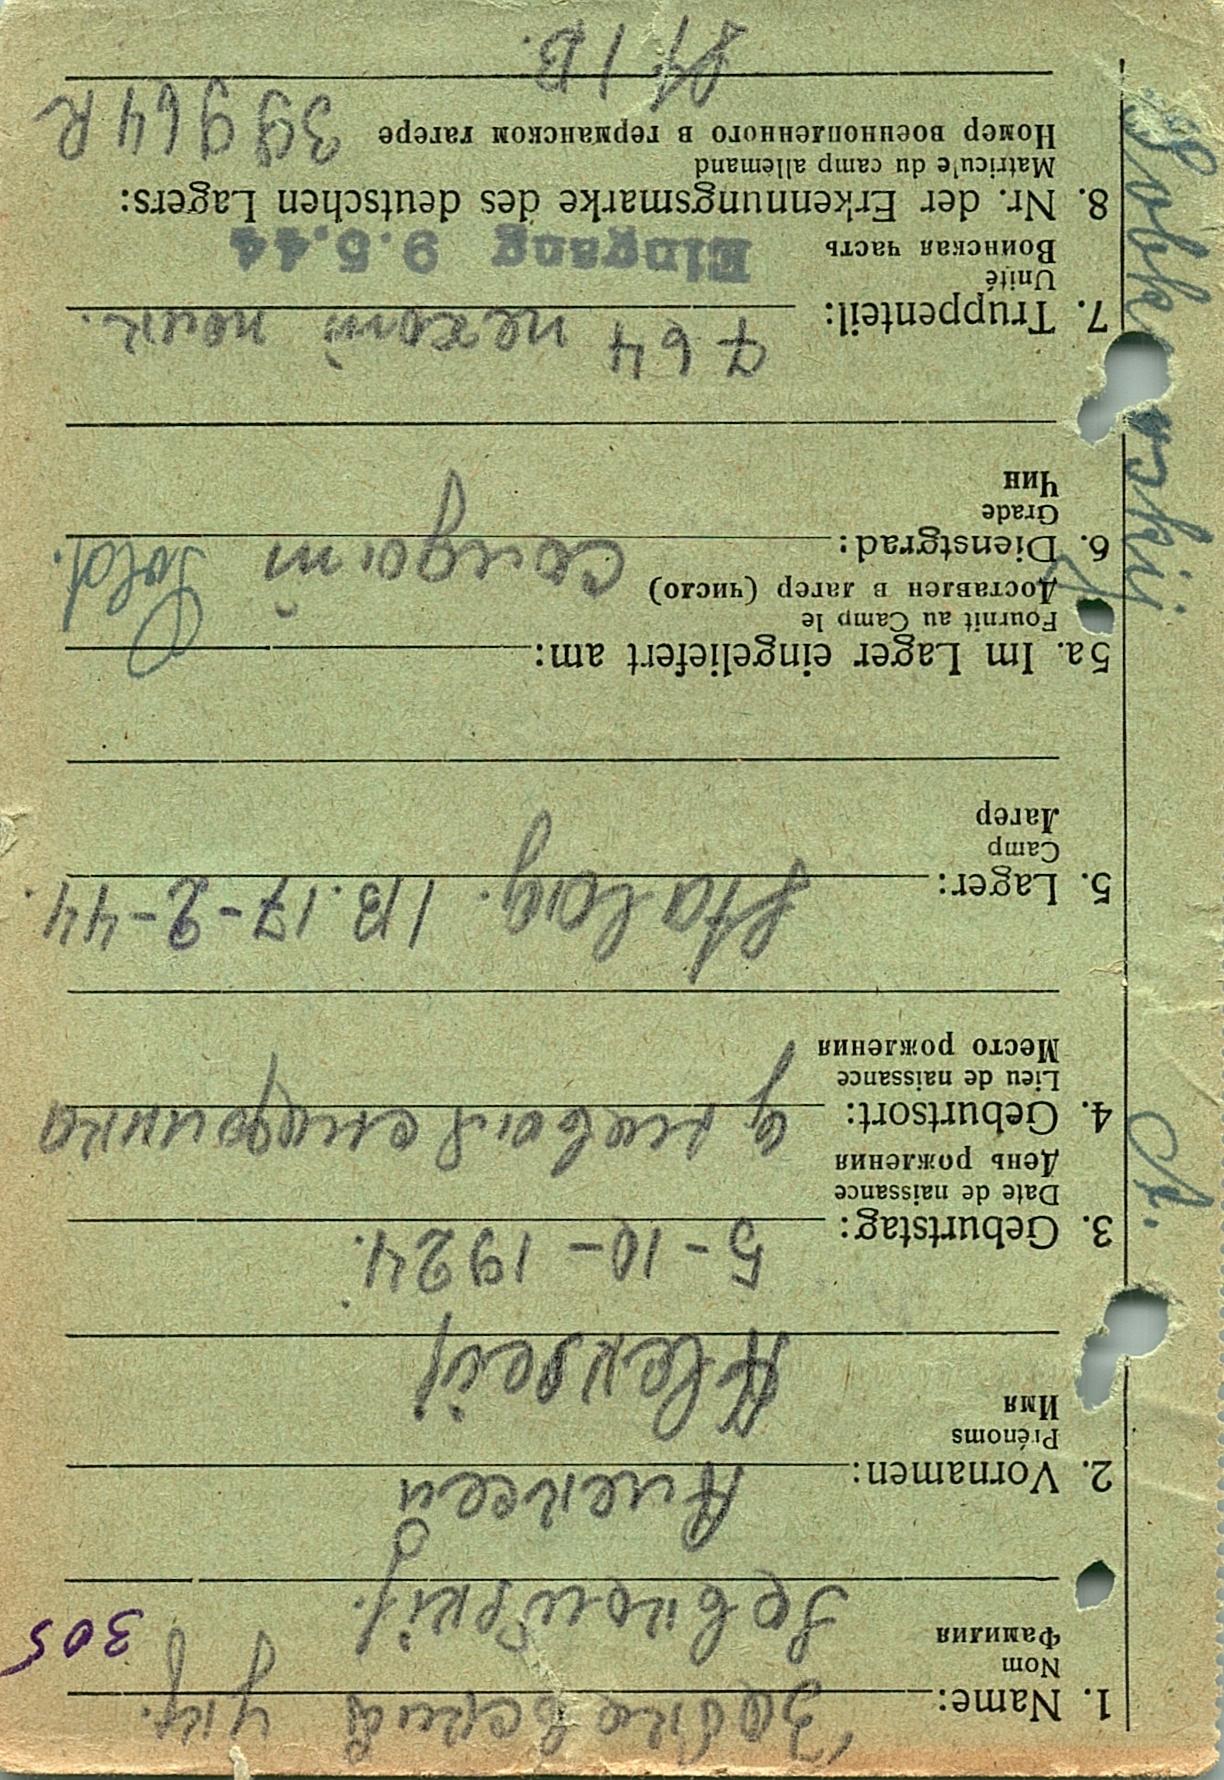 1. Name: Забковский Укр.
Nom
Фамилия
305
2. Vornamen: Алексей
Prénoms
Имя
Alekseij
3. Geburtstag: 5-10-1924.
Date de naissance
День рождения
4. Geburtsort:
Lieu de naissance
Место рождения
5. Lager: Stalag. IB. 17-2-44.
Camp
Лагерь
5a. Im Lager eingeliefert am:
Fournit au Camp le
Доставлен в лагерь (число)
6. Dienstgrad: солдат Sold.
Grade
Чин
7. Truppenteil: 764 пехот полк.
Unité
Воинская часть
Eingang 9.5.44
8. Nr. der Erkennungsmarke des deutschen Lagers:
Matricule du camp allemand
Номер военнопленного в германском лагере 39964 R
St IB.
A.